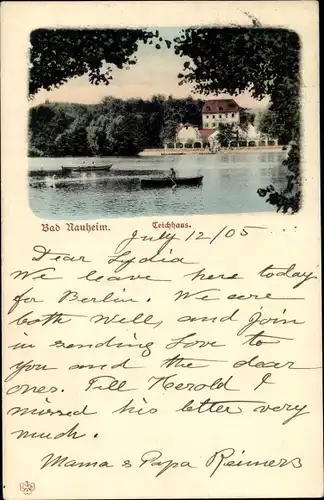 Bad Nauheim. Teichhaus.
July 12/05
Dear Lydia
We leave here today
for Berlin. We are
both well, and join
in sending Love to
you and the dear
ones. Tell Herold I
missed his letter very
much.
Mama & Papa Reiners